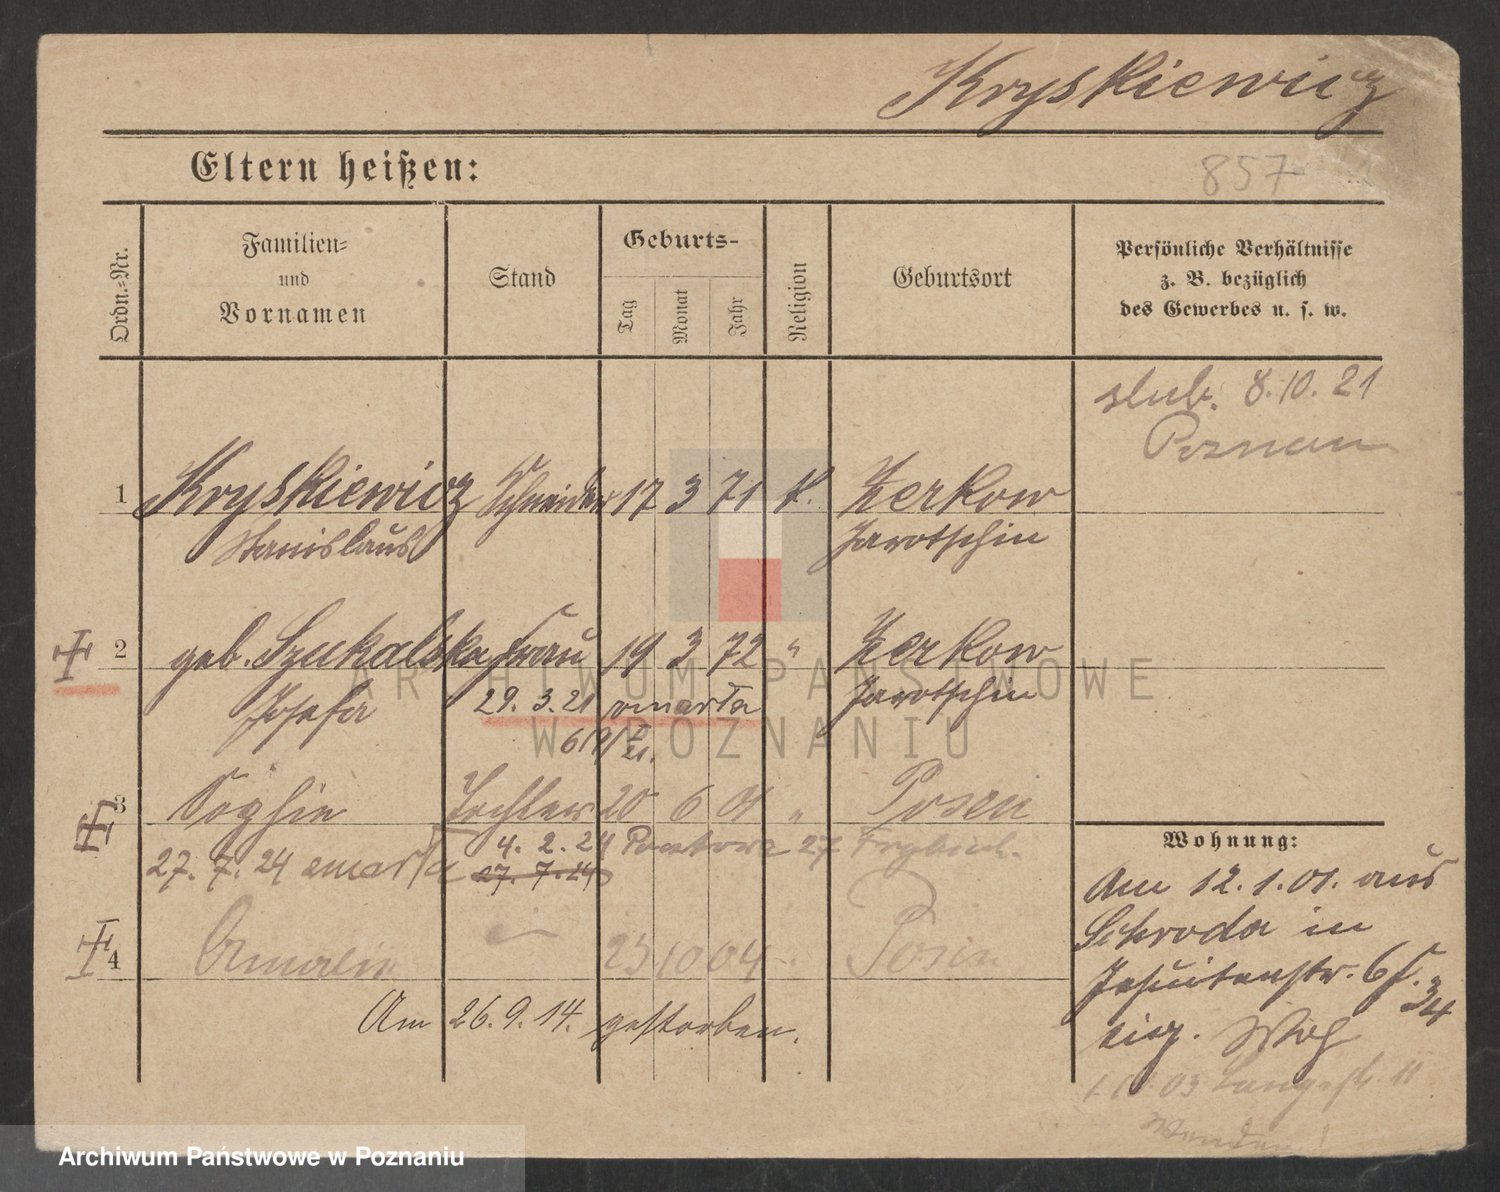 Kryskiewicz
Eltern heißen:
857
Ordn.-Nr.
Familien- und Vornamen
Stand
Geburts-
Tag
Monat
Jahr
Religion
Geburtsort
Persönliche Verhältnisse
z. B. bezüglich
des Gewerbes u. s. w.
slub. 8.10.21
Poznan
1 Kryskiewicz Schneider 17 3 71 k. Zerkow
Stanislaus Jarotschin
2 geb. Szukalska Frau 19 3 72 " Zerkow
Josefa 29. 3. 21 omarła Jarotschin
3 Sophie Tochter 20 6 01 " Posen
27. 7. 24 umarła 4. 2. 24 27
27. 7. 24
4 Amalie 23 10 04 Posen
Am 26. 9. 14. gestorben.
Wohnung:
Am 12. 1. 01. aus
Schroda in
Jesuitenstr. 65.
34
eig. Wog
03 Langestr. 11
Wenden!
ARCHIWUM PAŃSTWOWE
W POZNANIU
Archiwum Państwowe w Poznaniu